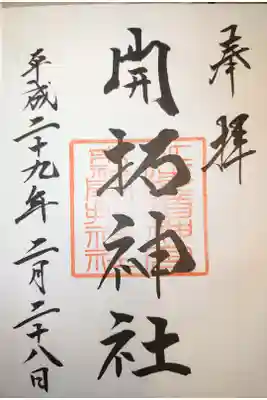 奉拝
開拓神社
平成二十九年 二月二十八日